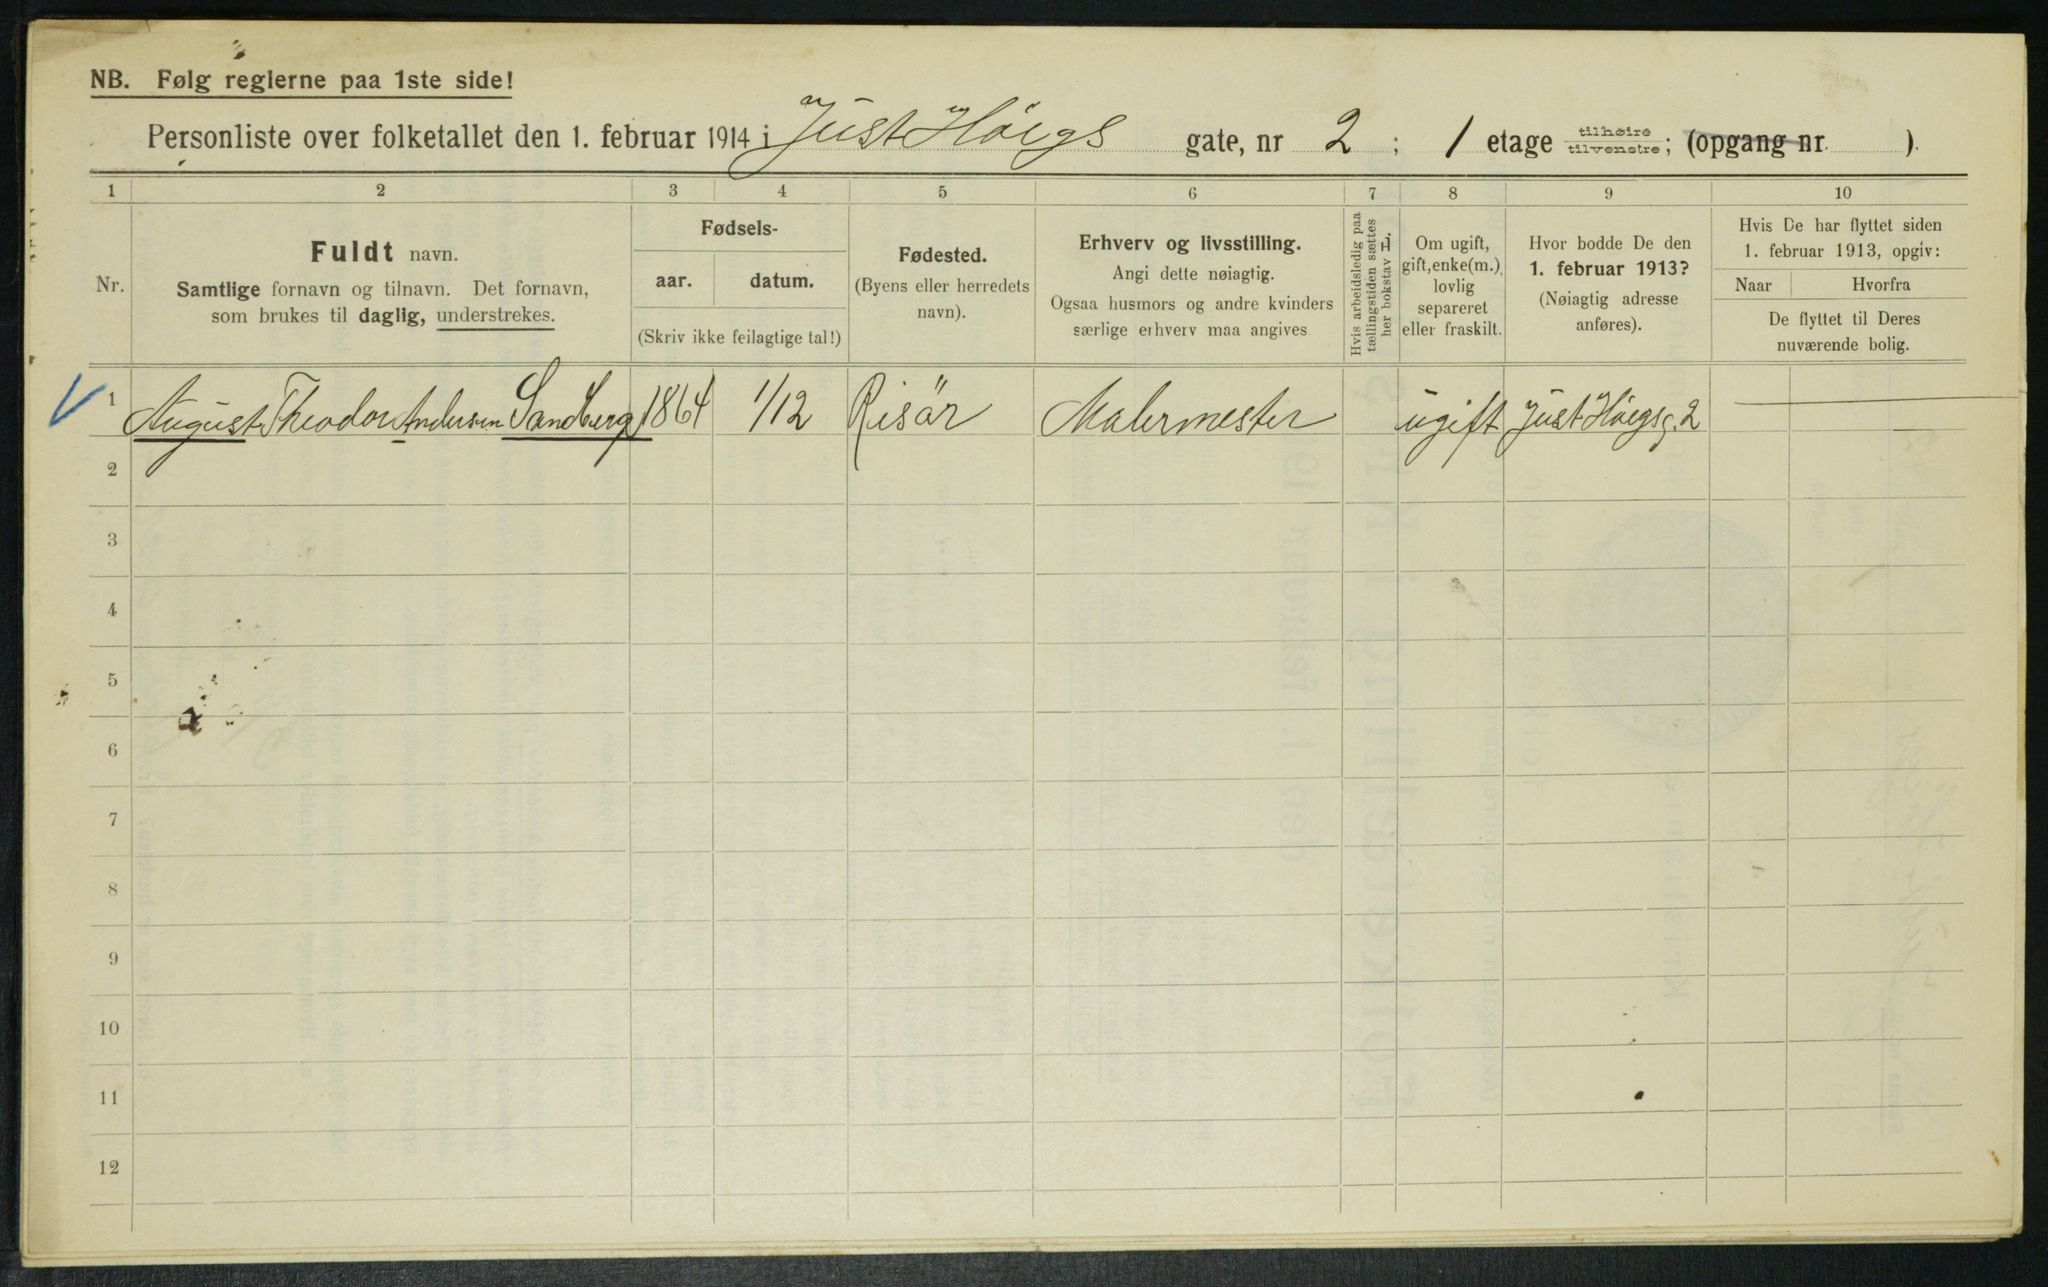 NB. Følg reglerne paa 1ste side!
Personliste over folketallet den 1. februar 1914 i Just Höegs gate, nr 2 ; 1 etage tilhøire tilvenstre; (opgang nr. ).
1 2 3 4 5 6 7 8 9 10
Nr.
Fuldt navn.
Samtlige fornavn og tilnavn. Det fornavn,
som brukes til daglig, understrekes.
Fødsels-
aar. datum.
(Skriv ikke feilagtige tal!)
Fødested.
(Byens eller herredets
navn).
Erhverv og livsstilling.
Angi dette nøiagtig.
Ogsaa husmors og andre kvinders
særlige erhverv maa angives
Hvis arbeidsledig paa
tællingstiden sættes
her bokstav L.
Om ugift,
gift, enke(m.),
lovlig
separeret
eller fraskilt.
Hvor bodde De den
1. februar 1913?
(Nøiagtig adresse
anføres).
Hvis De har flyttet siden
1. februar 1913, opgiv:
Naar Hvorfra
De flyttet til Deres
nuværende bolig.
1 August Theodor Andersen Sandberg 1864 1/12 Risör Malermester ugift Just Höegsg. 2
2
3
4
5
6
7
8
9
10
11
12